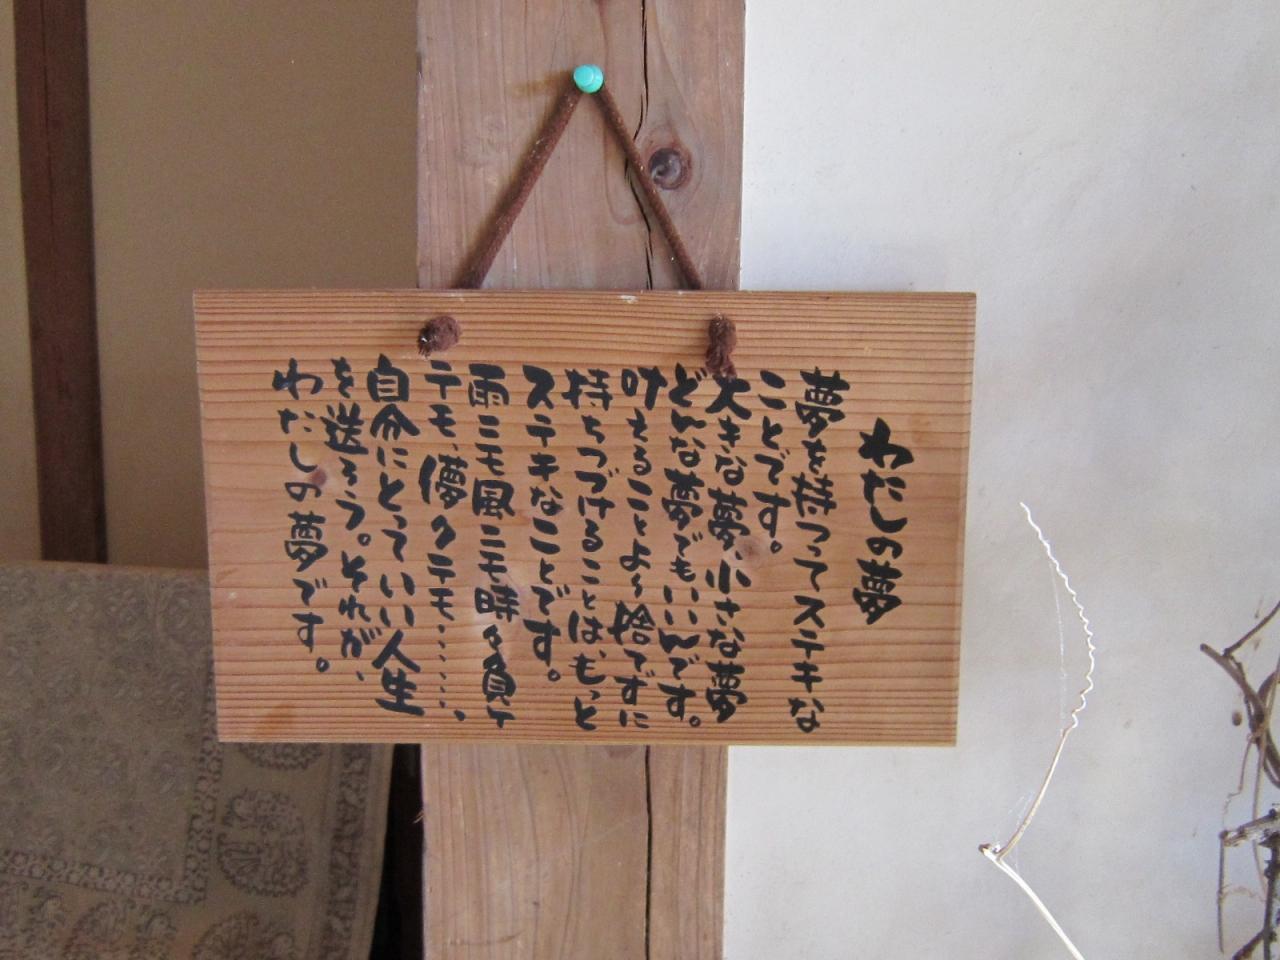 わたしの夢
夢を持つってステキな
ことです。
大きな夢、小さな夢
どんな夢でもいいんです。
叶えることよ〜捨てずに
持ちつづけることは、もっと
ステキなことです。
雨ニモ風ニモ時々負ケ
テモ、儚クテモ……、
自分にとっていい人生
を送ろう。それが、
わたしの夢です。